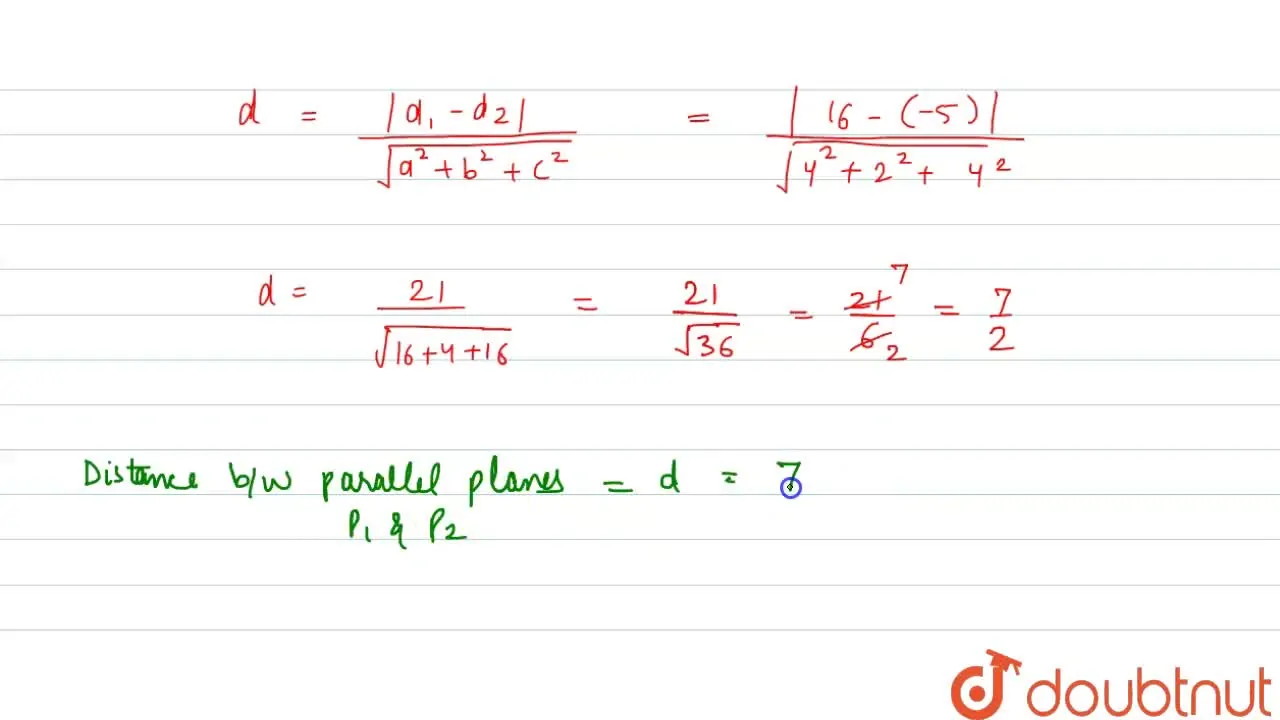 d = |d₁ - d₂| / √(a² + b² + c²) = | 16 - (-5) | / √(4² + 2² + 4²)
d = 21 / √(16+4+16) = 21 / √36 = 21 7 / 6 2 = 7 / 2
Distance b/w parallel planes = d = 7
P₁ & P₂
doubtnut